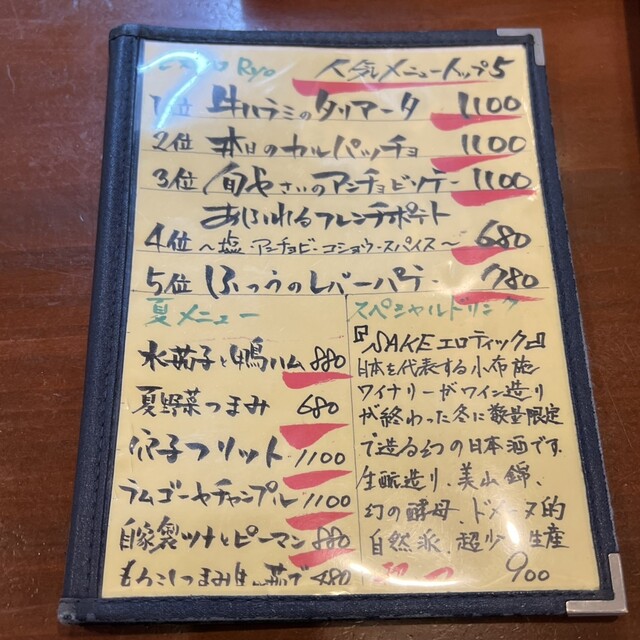 Ryo 人気メニュートップ5
1位 牛ハラミのタリアータ 1100
2位 本日のカルパッチョ 1100
3位 旬やさいのアンチョビソテー 1100
あふれるフレンチポテト
4位 〜塩・アンチョビ・コショウ・スパイス〜 680
5位 ふつうのレバーパテ 780
夏メニュー
水茄子と鴨ハム 880
夏野菜つまみ 680
穴子フリット 1100
ラムゴーヤチャンプル 1100
自家製ツナとピーマン 880
もろこしつまみ 茹で 480
スペシャルドリンク
『SAKEエロティック』
日本を代表する小布施
ワイナリーがワイン造り
が終わった冬に数量限定
で造る幻の日本酒です。
生酛造り、美山錦、
幻の酵母、ドメーヌ的
自然派、超少 生産
900